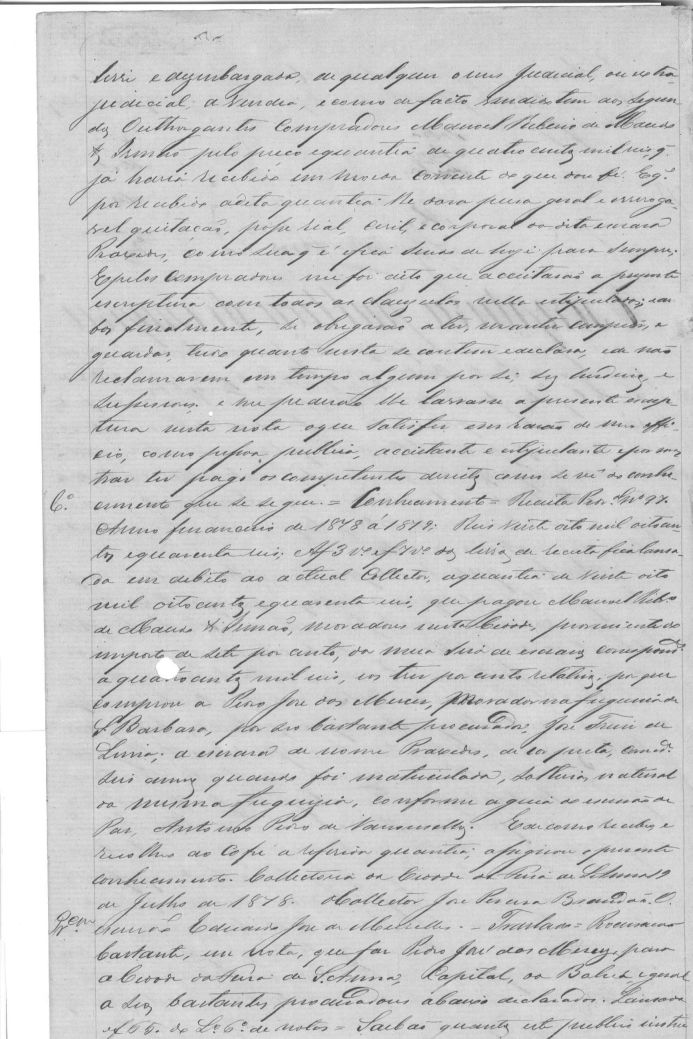 livre e dezembargada, de qualquer onus judicial, ou extra
judicial: a vendia, e como de facto vendido tem aos segun
dos Outhorgantes Compradores Manoel Ribeiro de Macedo
& Irmão pelo preço e quantia de quatro centos mil reis q.
já havia recebido em moeda corrente do que dou fé. Eq.
por recebido a dita quantia: lhe dava plena geral e irrevoga
vel quitação, posse real, civil, e corporal da dita escrava
Praxedes, como sua q. é e fica sendo de hoje para sempre;
E pelos Compradores me foi dito que acceitavão a presente
escriptura com todas as clauzulas nella estipuladas; e am
bos finalmente, se obrigarão a ter, manter cumprir, e
guardar, tudo quanto nesta se contem e declara, e de não
reclamarem em tempo algum por si, seus herdeiros, e
sucessores; e me pedirão lhe lavrasse a presente escrip
tura nesta nota o que satisfiz em razão de meu offi
cio, como pessoa publica, acceitante e estipulante e por mos
trar ter pago os competentes direitos como se vê do conhe
6º. cimento que se segue. = Conhecimento = Receita Nº 97.
Anno financeiro de 1878 á 1879: Reis vinte oito mil oitocen
tos e quarenta reis; Af 3 vº e f 7 vº do livro de receita fica lança
do em debito ao actual Collector, a quantia de vinte oito
mil oitocentos e quarenta reis, que pagou Manoel Ribº
de Macedo & Irmão, moradores nesta Cidade, proveniente do
imposto de sete por cento, da meia siza de escravos correspond.
a quatro centos mil reis, e os tres por cento relativos, por que
comprou a Pedro José das Mercês, morador na freguezia de
S. Barbara, por seo bastante procurador, José
Lima; a escrava de nome Praxedes, de cor preta, com
seis annos quando foi matriculada, solteira, natural
da mesma freguezia, conforme a guia do escrivão de
Paz, Antonio Pedro de Vasconcellos. E de como recebeo e
recolheo ao Cofre a referida quantia, assignou o presente
conhecimento. Collectoria da Cidade da Feira de S. Anna 19
de Julho de 1878. O Collector José Pereira Brandão. O
Procm escrivão Eduardo José de Meirelles. = Traslado = Procuração
bastante, em nota, que faz Pedro José das Mercês, para
a Cidade da Feira de S. Anna, Capital, da Bahia e geral
a seos bastantes procuradores abaixo declarados. Lançada
af 65. do Lº 6º de notas = Saibão quantos este publico instru